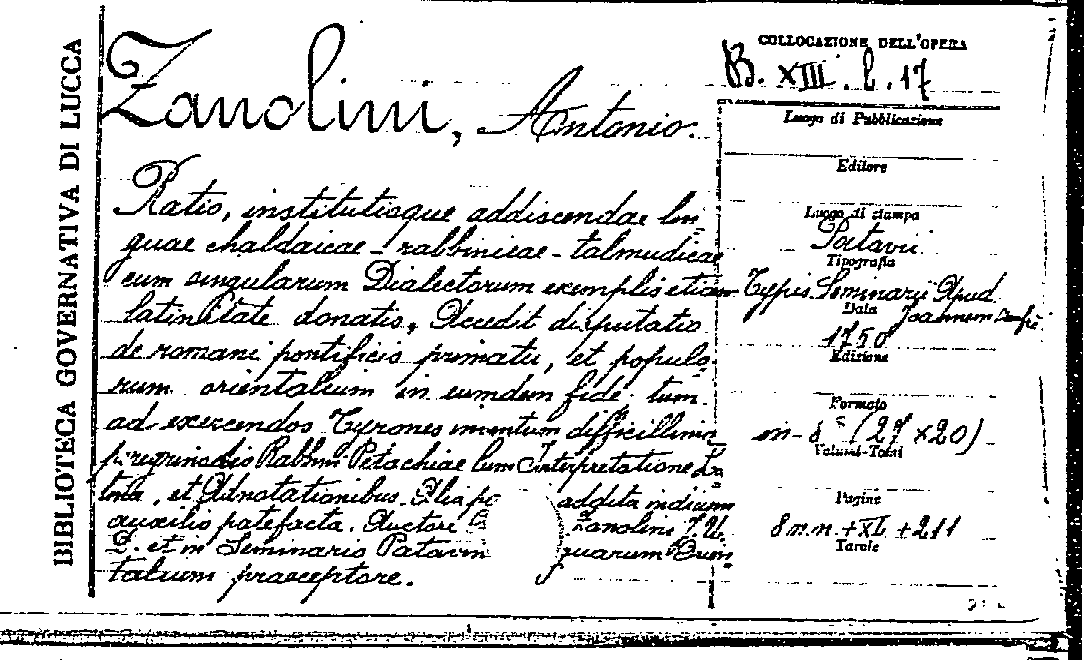 BIBLIOTECA GOVERNATIVA DI LUCCA
Zanolini, Antonio.
Ratio, institutioque addiscendae lin-
guae chaldaicae - rabbinicae - talmudicae
cum singularum Dialectorum exemplis etiam
latinitate donatis, Accedit disputatio
de romani pontificis primatu, et populo-
rum orientalium in eumdem fide; tum
ad exercendos Tyrones inventum difficillima
peregrinatio Rabbini Petachiae cum Interpretatione La-
tina, et Adnotationibus. Alia
addita indicum
auxilio patefacta. Auctore
Zanolino
D. et in Seminario Patavin
guarum Orien
talium praeceptore.
COLLOCAZIONE DELL'OPERA
B. XIII. l. 17
Luogo di Pubblicazione
Editore
Luogo di stampa
Patavii.
Tipografia
Typis Seminarii Apud
Joannem
Data
1750
Edizione
Formato
in-8° (27 x 20)
Volumi-Tomi
Pagine
8 n.n. + XL + 211
Tavole